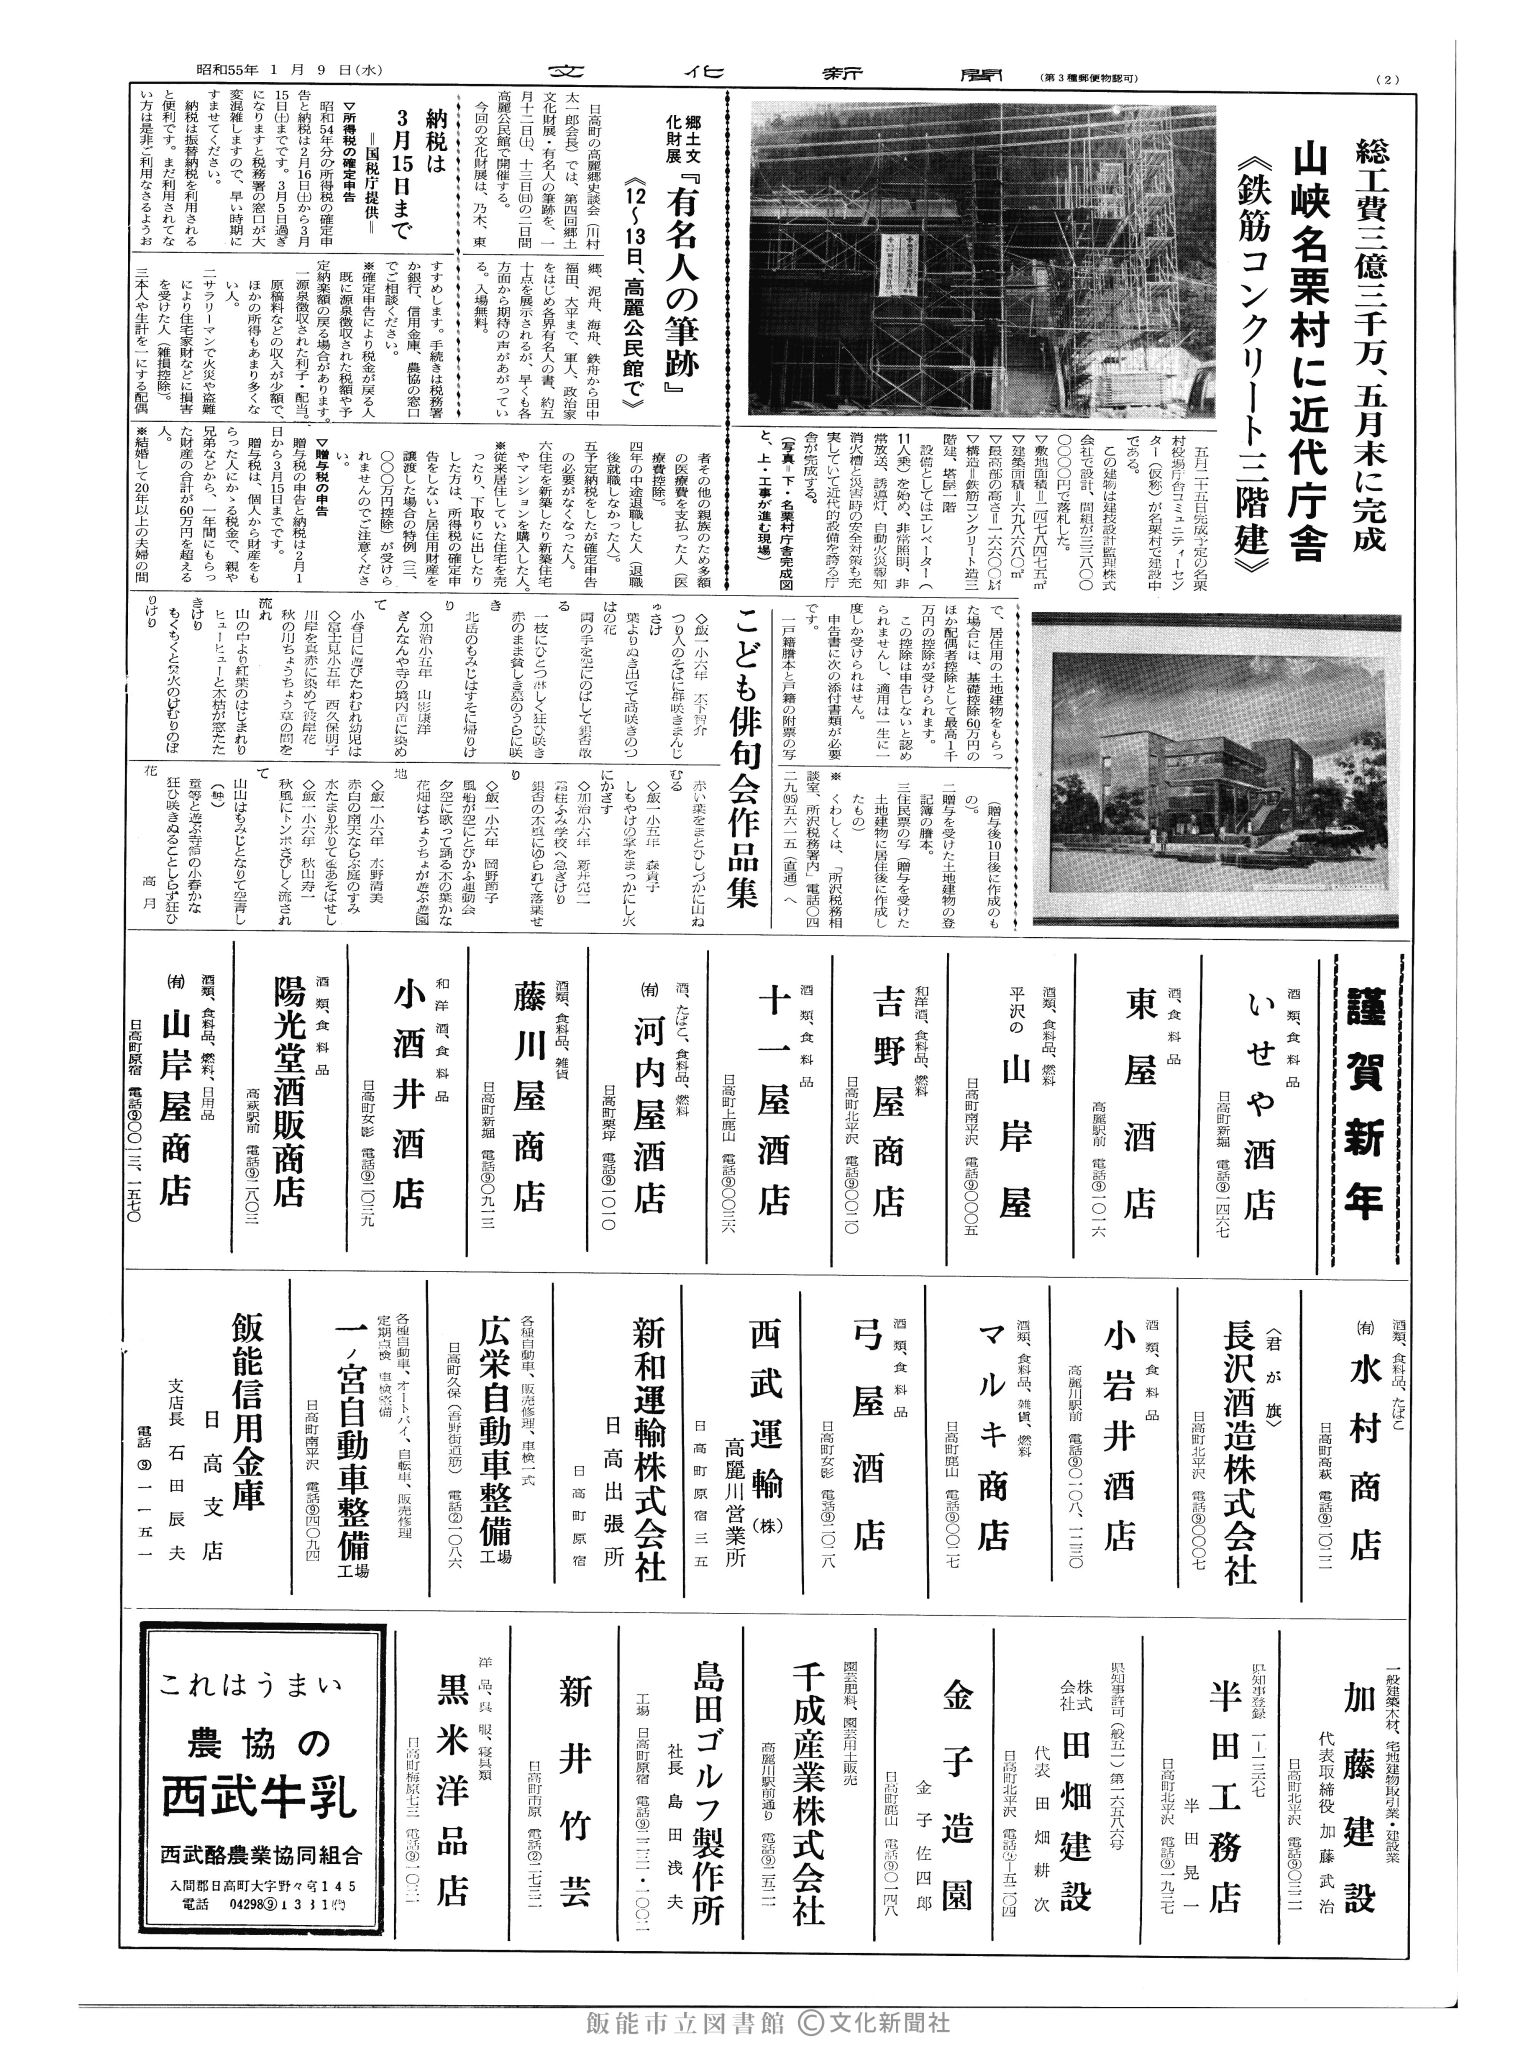 昭和55年1月9日(水)
文化新聞
(第3種郵便物認可)
(2)
総工費三億三千万、五月末に完成
山峡名栗村に近代庁舎
《鉄筋コンクリート三階建》
五月二十五日完成予定の名栗
村役場庁舎コミュニティーセン
ター(仮称)が名栗村で建設中
である。
この建物は建技設計監理株式
会社で設計、間組が三三八〇〇
〇〇〇〇円で落札した。
▽敷地面積=二四七八四七五㎡
▽建築面積=六九八六八〇㎡
▽構造=鉄筋コンクリート造三
階建、塔屋一階
設備としてはエレベーター(
11人乗)を始め、非常照明、非
常放送、誘導灯、自動火災報知
消火槽と災害時の安全対策も充
実していて近代的設備を誇る庁
舎が完成する。
(写真=下・名栗村庁舎完成図
と、上・工事が進む現場)
郷土文
化財展
『有名人の筆跡』
《12〜13日、高麗公民館で》
日高町の高麗郷史談会(川村
太一郎会長)では、第四回郷土
文化財展・有名人の筆跡を、一
月十二日(土)、十三日(日)の二日間
高麗公民館で開催する。
今回の文化財展は、乃木、東
郷、泥舟、海舟、鉄舟から田中
福田、大平まで、軍人、政治家
をはじめ各界有名人の書、約五
十点を展示されるが、早くも各
方面から期待の声があがってい
る。入場無料。
納税は
3月15日まで
=国税庁提供=
▽所得税の確定申告
昭和54年分の所得税の確定申
告と納税は2月16日(土)から3月
15日(土)までです。3月5日過ぎ
になりますと税務署の窓口が大
変混雑しますので、早い時期に
すませてください。
納税は振替納税を利用される
と便利です。まだ利用されてな
い方は是非ご利用なさるようお
すすめします。手続きは税務署
か銀行、信用金庫、農協の窓口
でご相談ください。
※確定申告により税金が戻る人
既に源泉徴収された税額や予
定納楽額の戻る場合があります。
一源泉徴収された利子・配当。
原稿料などの収入が少額で、
ほかの所得もあまり多くな
い人。
二サラリーマンで火災や盗難
により住宅家財などに損害
を受けた人(雑損控除)。
三本人や生計を一にする配偶
者その他の親族のため多額
の医療費を支払った人(医
療費控除)。
四年の中途退職した人(退職
後就職しなかった人)。
五予定納税をしたが確定申告
の必要がなくなった人。
六住宅を新築したり新築住宅
やマンションを購入した人。
※従来居住していた住宅を売
ったり、下取りに出したり
した方は、所得税の確定申
告をしないと居住用財産を
譲渡した場合の特例(三、
〇〇〇万円控除)が受けら
れませんのでご注意くださ
い。
▽贈与税の申告
贈与税の申告と納税は2月1
日から3月15日までです。
贈与税は、個人から財産をも
らった人にかゝる税金で、親や
兄弟などから、一年間にもらっ
た財産の合計が60万円を超える
人。
※結婚して20年以上の夫婦の間
で、居住用の土地建物をもらっ
た場合には、基礎控除60万円の
ほか配偶者控除として最高1千
万円の控除が受けられます。
この控除は申告しないと認め
られませんし、適用は一生に一
度しか受けられません。
申告書に次の添付書類が必要
です。
一戸籍謄本と戸籍の附票の写
(贈与後10日後に作成のも
の)。
二贈与を受けた土地建物の登
記簿の謄本。
三住民票の写(贈与を受けた
土地建物に居住後に作成し
たもの)
※くわしくは、「所沢税務相
談室、所沢税務署内」電話〇四
二九(95)五六一五(直通)へ
こども俳句会作品集
◇飯一小六年 木下智介
つり人のそばに群咲きまんじ
ゅさけ
葉よりぬき出でて高咲きのつ
はの花
両の手を空にのばして銀杏散
る
一枝にひとつ淋しく狂ひ咲き
赤のまま貧しき墓のうらに咲
き
北岳のもみじはすそに帰りけ
り
◇加治小五年 山影康洋
ぎんなんや寺の境内黄に染め
て
小春日に遊びたわむれ幼児は
◇富士見小五年 西久保明子
川岸を真赤に染めて彼岸花
秋の川ちょうちょう草の間を
流れ
山の中より紅葉のはじまれり
ヒューヒューと木枯が窓たた
きけり
もくもくと炎火のけむりのぼ
りけり
赤い葉をまとひしづかに山ね
むる
◇飯一小五年 森貴子
しもやけの掌をまっかにし火
にかざす
◇加治小六年 新井亮二
霜柱ふみ学校へ急ぎけり
銀杏の木風にゆられて落葉せ
り
◇飯一小六年 岡野節子
風船が空にとびかふ運動会
夕空に歌って踊る木の葉かな
花畑はちょうちょが遊ぶ遊園
地
◇飯一小六年 水野清美
赤白の南天ならぶ庭のすみ
水たまり氷りて竜あそばせし
◇飯一小六年 秋山寿一
秋風にトンボさびしく流され
て
山山はもみじとなりて空青し
童等と遊ぶ寺領の小春かな
狂ひ咲きぬることしらず狂ひ
花
高月
謹賀新年
酒類、食料品
いせや酒店
日高町新堀 電話⑨一四六七
酒、食料品
東屋酒店
高麗駅前 電話⑨一〇一六
酒類、食料品、燃料
平沢の 山岸屋
日高町南平沢 電話⑨〇〇〇五
和洋酒、食料品、燃料
吉野屋商店
日高町北平沢 電話⑨〇〇二〇
酒類、食料品
十一屋酒店
日高町上鹿山 電話⑨〇〇三六
酒、たばこ、食料品、燃料
(有)河内屋酒店
日高町栗坪 電話⑨一〇一〇
酒類、食料品、雑貨
藤川屋商店
日高町新堀 電話⑨〇九一三
和洋酒、食料品
小酒井酒店
日高町女影 電話⑨二〇三九
酒類、食料品
陽光堂酒販商店
高萩駅前 電話⑨二八〇三
酒類、食料品、燃料、日用品
(有)山岸屋商店
日高町原宿 電話⑨〇〇一三、一五七〇
酒類、食料品、たばこ
(有)水村商店
日高町高萩 電話⑨二〇二二
〈君が旗〉
長沢酒造株式会社
日高町北平沢 電話⑨〇〇〇七
酒類、食料品
小岩井酒店
高麗川駅前 電話⑨〇一〇八、一二三〇
酒類、食料品、雑貨、燃料
マルキ商店
日高町鹿山 電話⑨〇〇二七
酒類、食料品
弓屋酒店
日高町女影 電話⑨二〇二八
西武運輸(株)
高麗川営業所
日高町原宿三五
新和運輸株式会社
日高出張所
日高町原宿
各種自動車、販売修理、車検一式
広栄自動車整備工場
日高町久保(吾野街道筋) 電話②一〇八六
各種自動車、オートバイ、自転車、販売修理
定期点検 車検整備
一ノ宮自動車整備工場
日高町南平沢 電話⑨四〇九四
飯能信用金庫
日高支店
支店長 石田辰夫
電話⑨一一五一
一般建築木材、宅地建物取引業・建設業
加藤建設
代表取締役 加藤武治
日高町北平沢 電話⑨〇三二一
県知事登録 一—一三六七
半田工務店
半田晃一
日高町北平沢 電話⑨一九三七
県知事許可(般五一)第一六五八六号
株式会社 田畑建設
代表 田畑耕次
日高町北平沢 電話⑨—五二〇四
金子造園
金子佐四郎
日高町鹿山 電話⑨〇一四八
園芸肥料、園芸用土販売
千成産業株式会社
高麗川駅前通り 電話⑨二五二一
島田ゴルフ製作所
社長 島田浅夫
工場 日高町原宿 電話⑨二一三一・一〇〇二
新井竹芸
日高町市原 電話②二七三二
洋品、呉服、寝具類
黒米洋品店
日高町梅原七三 電話⑨一〇三一
これはうまい
農協の
西武牛乳
西武酪農業協同組合
入間郡日高町大字野々宮145
電話 04298⑨1331(代)
飯能市立図書館 ©文化新聞社